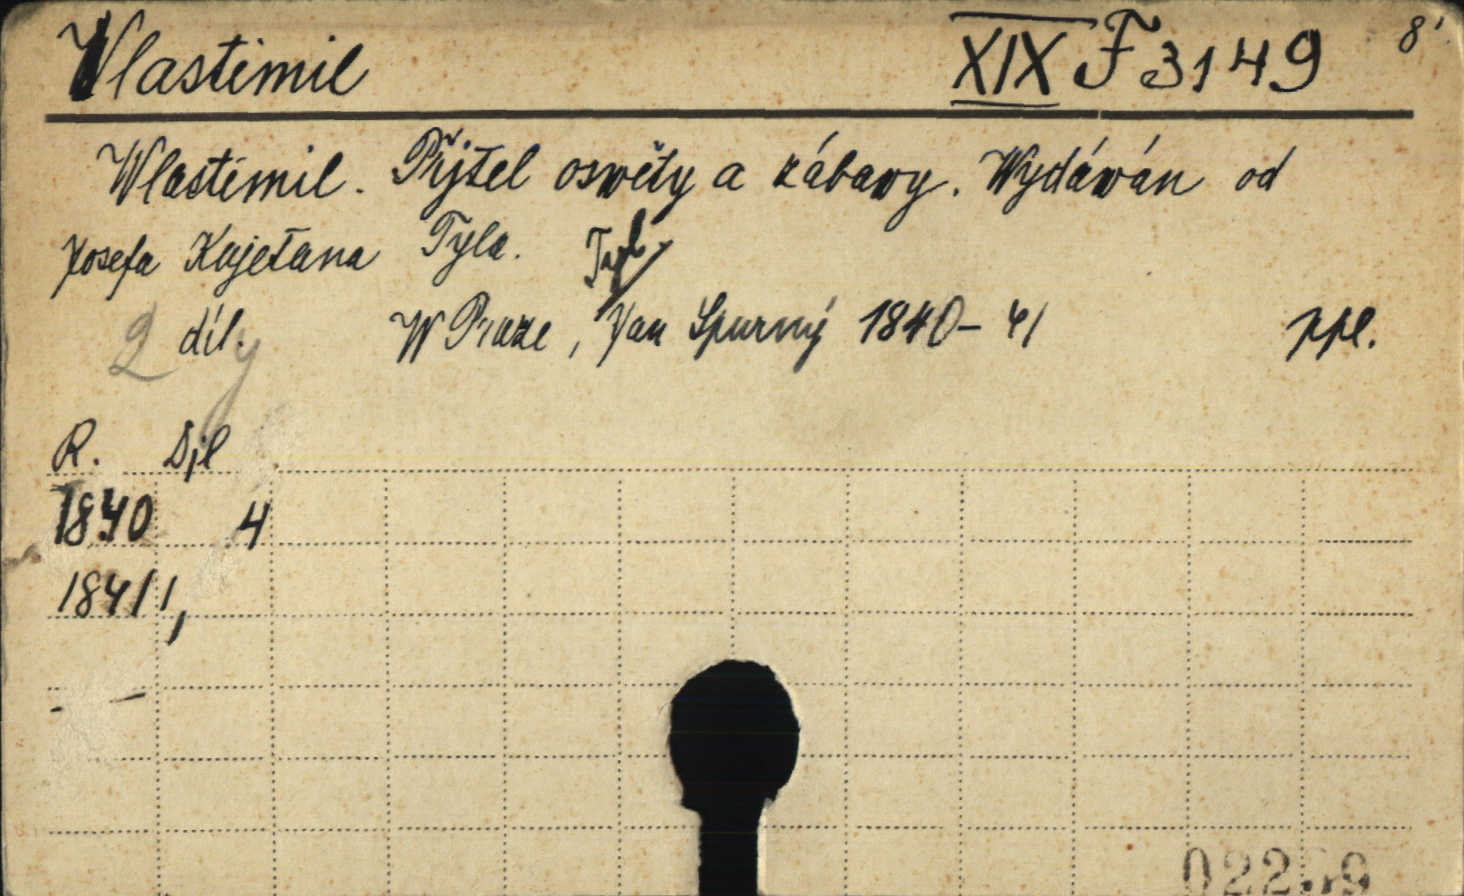 Vlastimil XIX F 3149 8'
Wlastimil. Přjtel oswěty a zábawy. Wydáwán od
Josefa Kajetana Tyla. Tyl
2 díly W Praze, Jan Spurný 1840-41 ppl.
R. Djl
1840 4
1841 1,